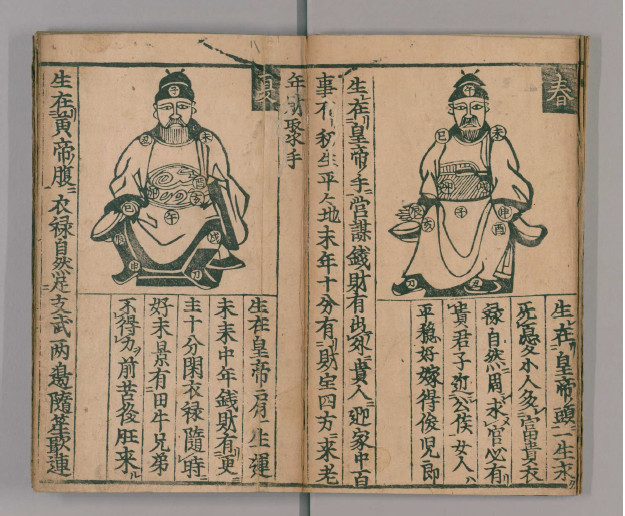 春
午
巳
未
午
申
酉
亥
生在皇帝頭一生求
憂小人多富貴衣
禄自然周求官必有
貴君子近公侯女人
平穏好嫁得俊児郎
生在皇帝手営謀錢財有出処貴人迎家中百
事有 生平々地末年十分有財宝四方来老
年財聚手
夏
午
丑
未
午
戌
申
生在皇帝肩一生運
未来中年錢財有更
主十分閑衣禄隨時
好末景有田牛兄弟
不得力前苦後旺来
生在黄帝腹衣禄自然足文武两邊隨